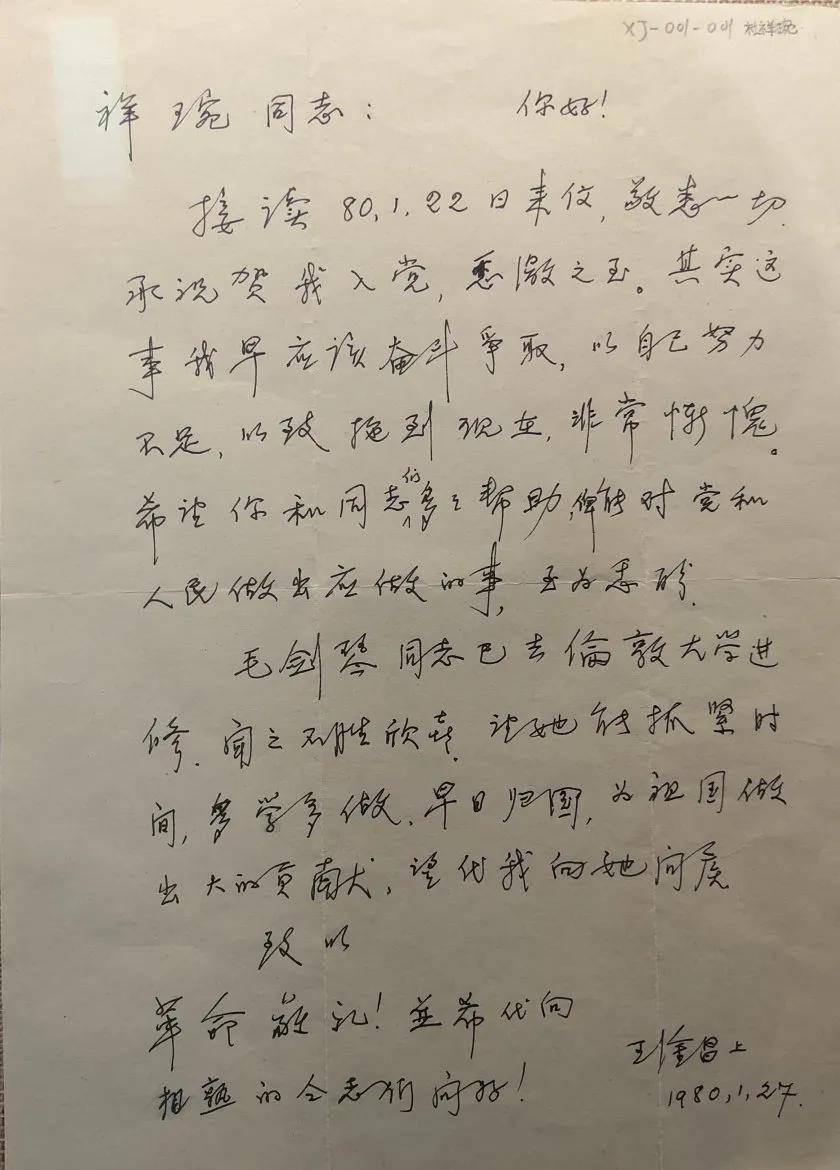 XJ-001-001 杜祥琬
祥琬同志： 你好！
接读80,1,22日来信,敬悉一切.
承祝贺我入党,感激之至。其实这
事我早应该奋斗爭取,以自己努力
不足,以致拖到现在,非常惭愧。
希望你和同志们多多帮助,俾能对党和
人民做出应做的事,至为感盼.
毛剑琴同志已去倫敦大学进
修.闻之不胜欣喜.望她能抓紧时
间,多学多做.早日归国,为祖国做
出大的贡献,望代我向她问侯
致以
革命敬礼!並希代向
相熟的仝志们问好!
王淦昌上
1980,1,27.